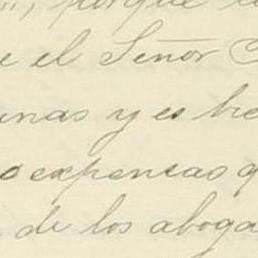 porque
e el Señor C
unas y es bie
o expensas q
de los aboga